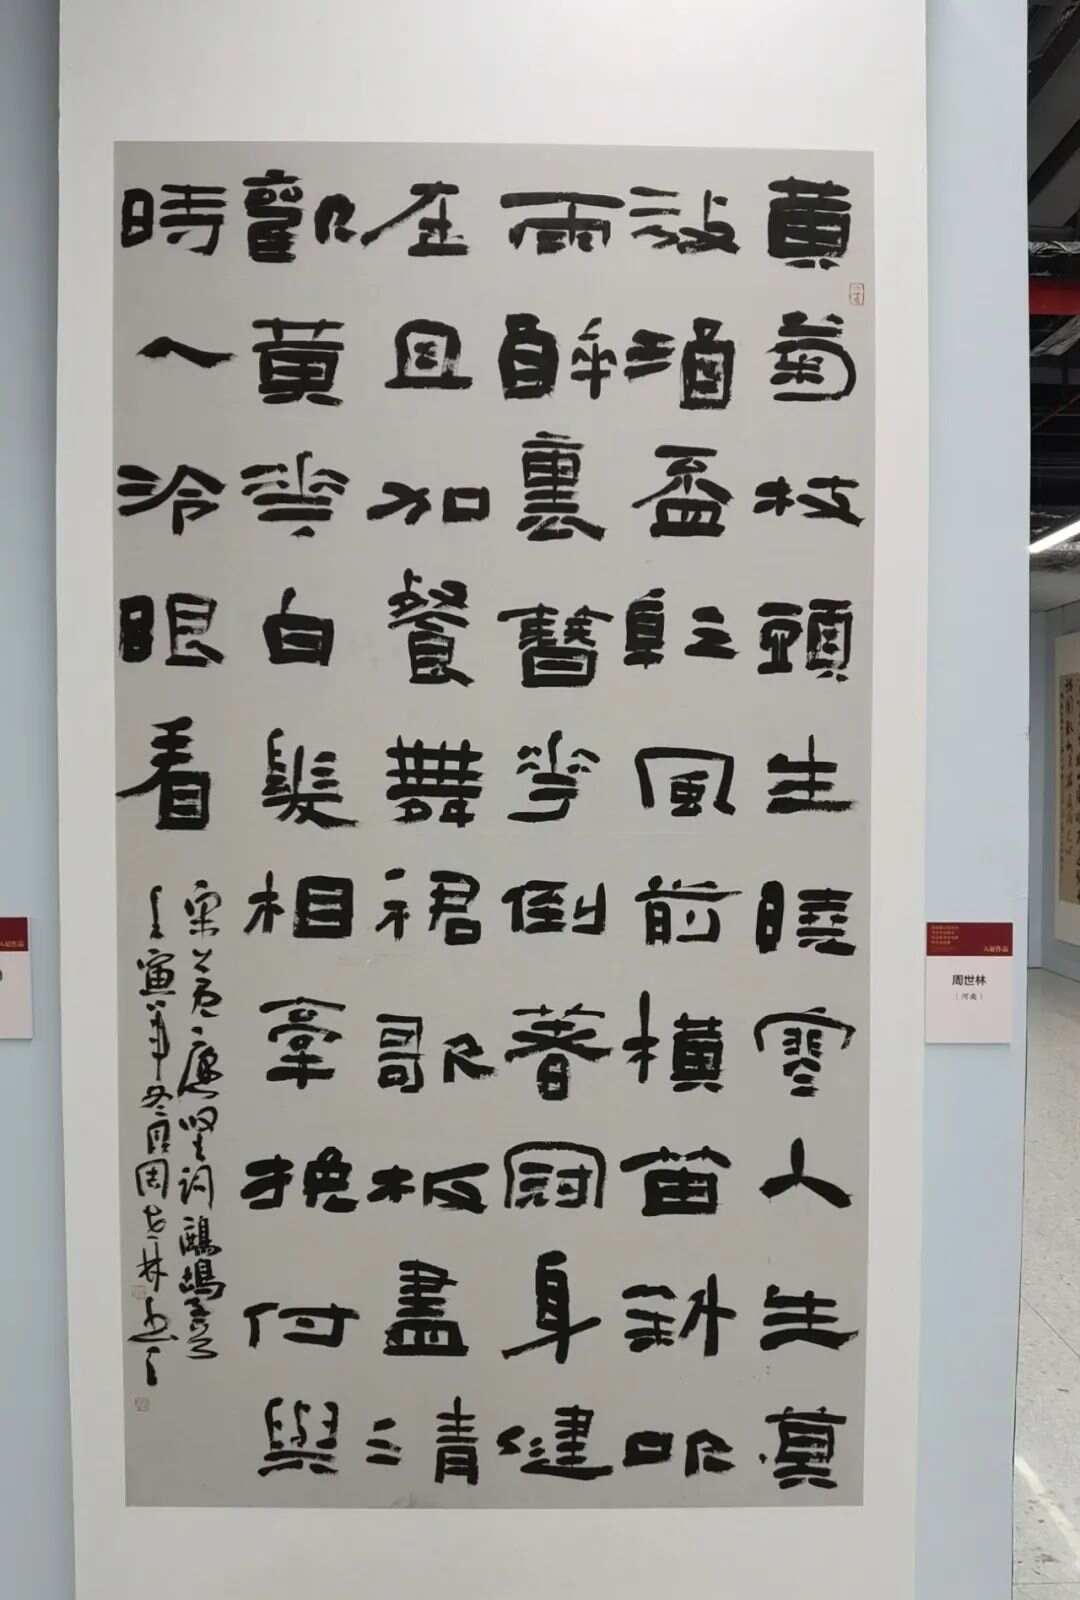 黃菊枝頭生曉寒人生莫
放酒盃乾風前橫笛斜吹
雨醉裏簪花倒著冠身健
在且加餐舞裙歌板盡清
歡黃花白髮相牽挽付與
時人冷眼看
宋黄庭堅詞鷓鴣天
壬寅年冬月周世林書
入展作品
周世林
（河南）
入展作品